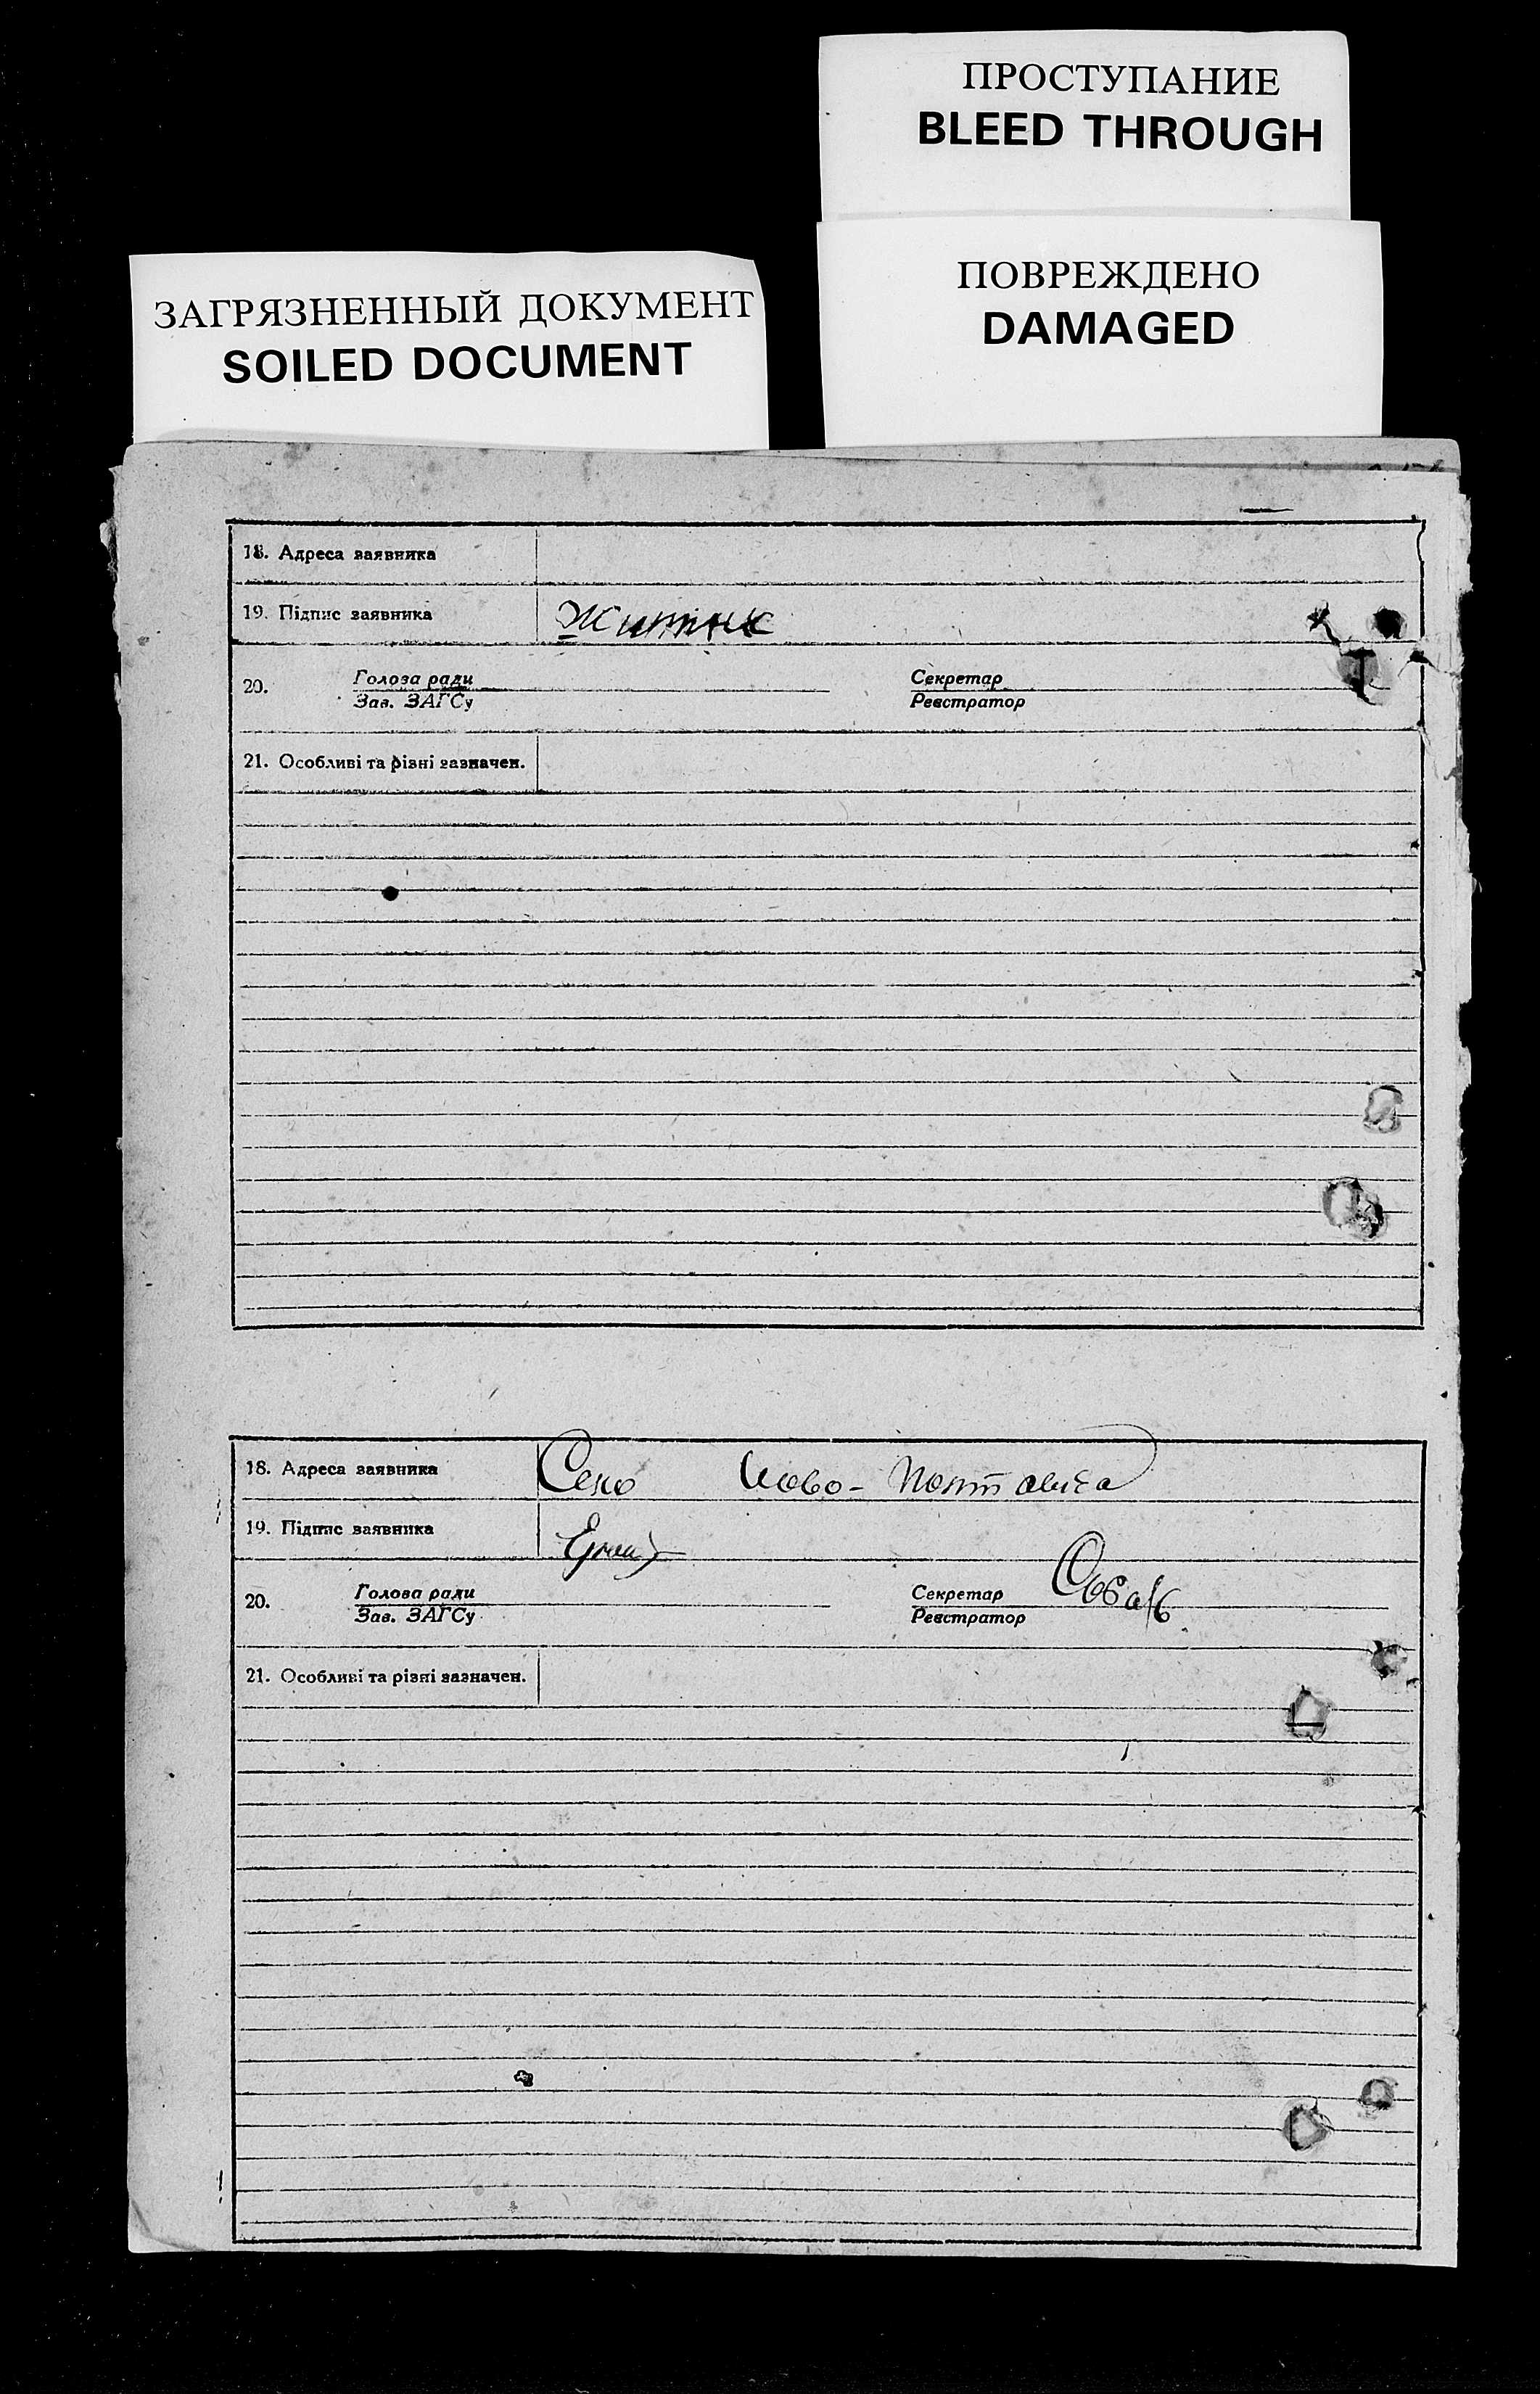 ПРОСТУПАНИЕ
BLEED THROUGH
ПОВРЕЖДЕНО
DAMAGED
ЗАГРЯЗНЕННЫЙ ДОКУМЕНТ
SOILED DOCUMENT
18. Адреса заявника
19. Підпис заявника Житник
20. Голова ради Секретар
Зав. ЗАГСу Реєстратор
21. Особливі та різні зазначен.
18. Адреса заявника Село Ново-Полтавка
19. Підпис заявника
20. Голова ради Секретар
Зав. ЗАГСу Реєстратор
21. Особливі та різні зазначен.